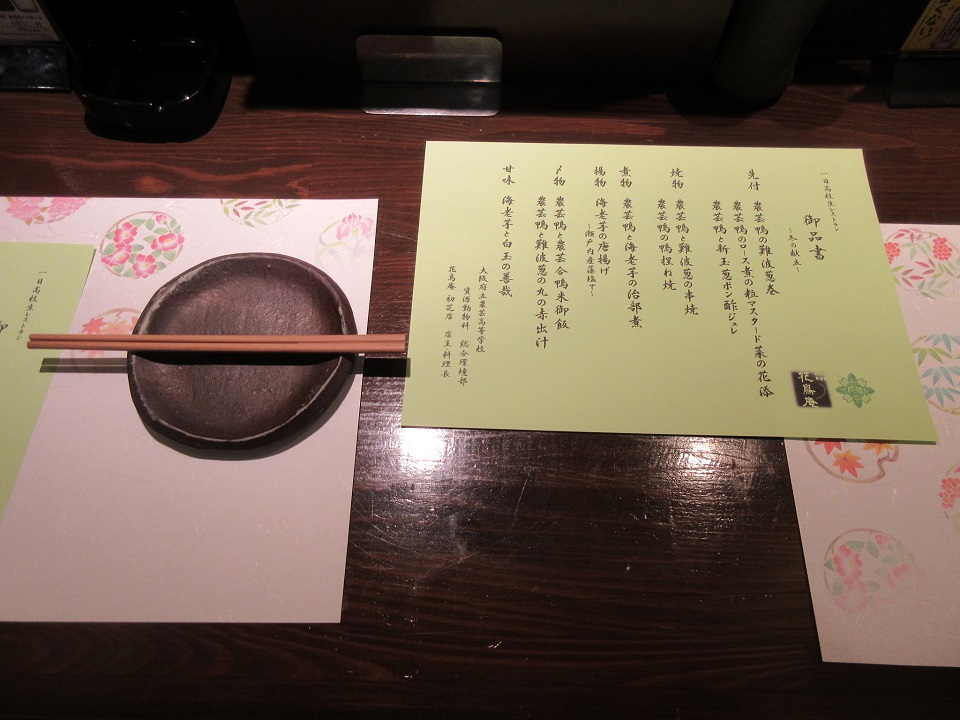 一日高校生レストラン
御品書
～冬の献立～
先付 農芸鴨の難波葱巻
農芸鴨のロース煮の粒マスタード 菜の花添
農芸鴨と新玉葱ポン酢ジュレ
焼物 農芸鴨と難波葱の串焼
農芸鴨の鴨捏ね焼
煮物 農芸鴨と海老芋の治部煮
揚物 海老芋の唐揚げ
～瀬戸内産藻塩で～
〆物 農芸鴨と農芸合鴨米御飯
農芸鴨と難波葱の丸の赤出汁
甘味 海老芋と白玉の善哉
大阪府立農芸高等学校
資源動物科 総合環境部
花鳥庵 初芝店 店主料理長
花鳥庵
一日高校生レストラン
御